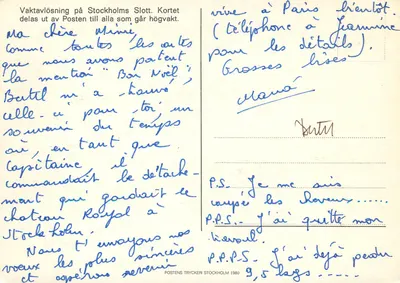 Vaktavlösning på Stockholms Slott. Kortet
delas ut av Posten till alla som går högvakt.
Ma chère Mimi,
comme toutes les cartes
que nous avons partent
la mention "Bon Noël",
Bertil m'a trouvé,
celle-ci pour toi, un
souvenir du temps
où, en tant que
Capitaine, il
commandait le détache-
ment qui gardait le
chateau Royal à
Stockholm.
Nous t'envoyons nos
voeux les plus sincères
et espérons revenir
vivre à Paris bientôt.
(téléphone à Jeannine
pour les détails).
Grosses bises
Bertil
P.S.- Je me suis
coupée les cheveux.....
P.P.S.- J'ai quitté mon
travail.
P.P.P.S- J'ai déjà perdu
9,5 kgs .....
POSTENS TRYCKERI STOCKHOLM 1980